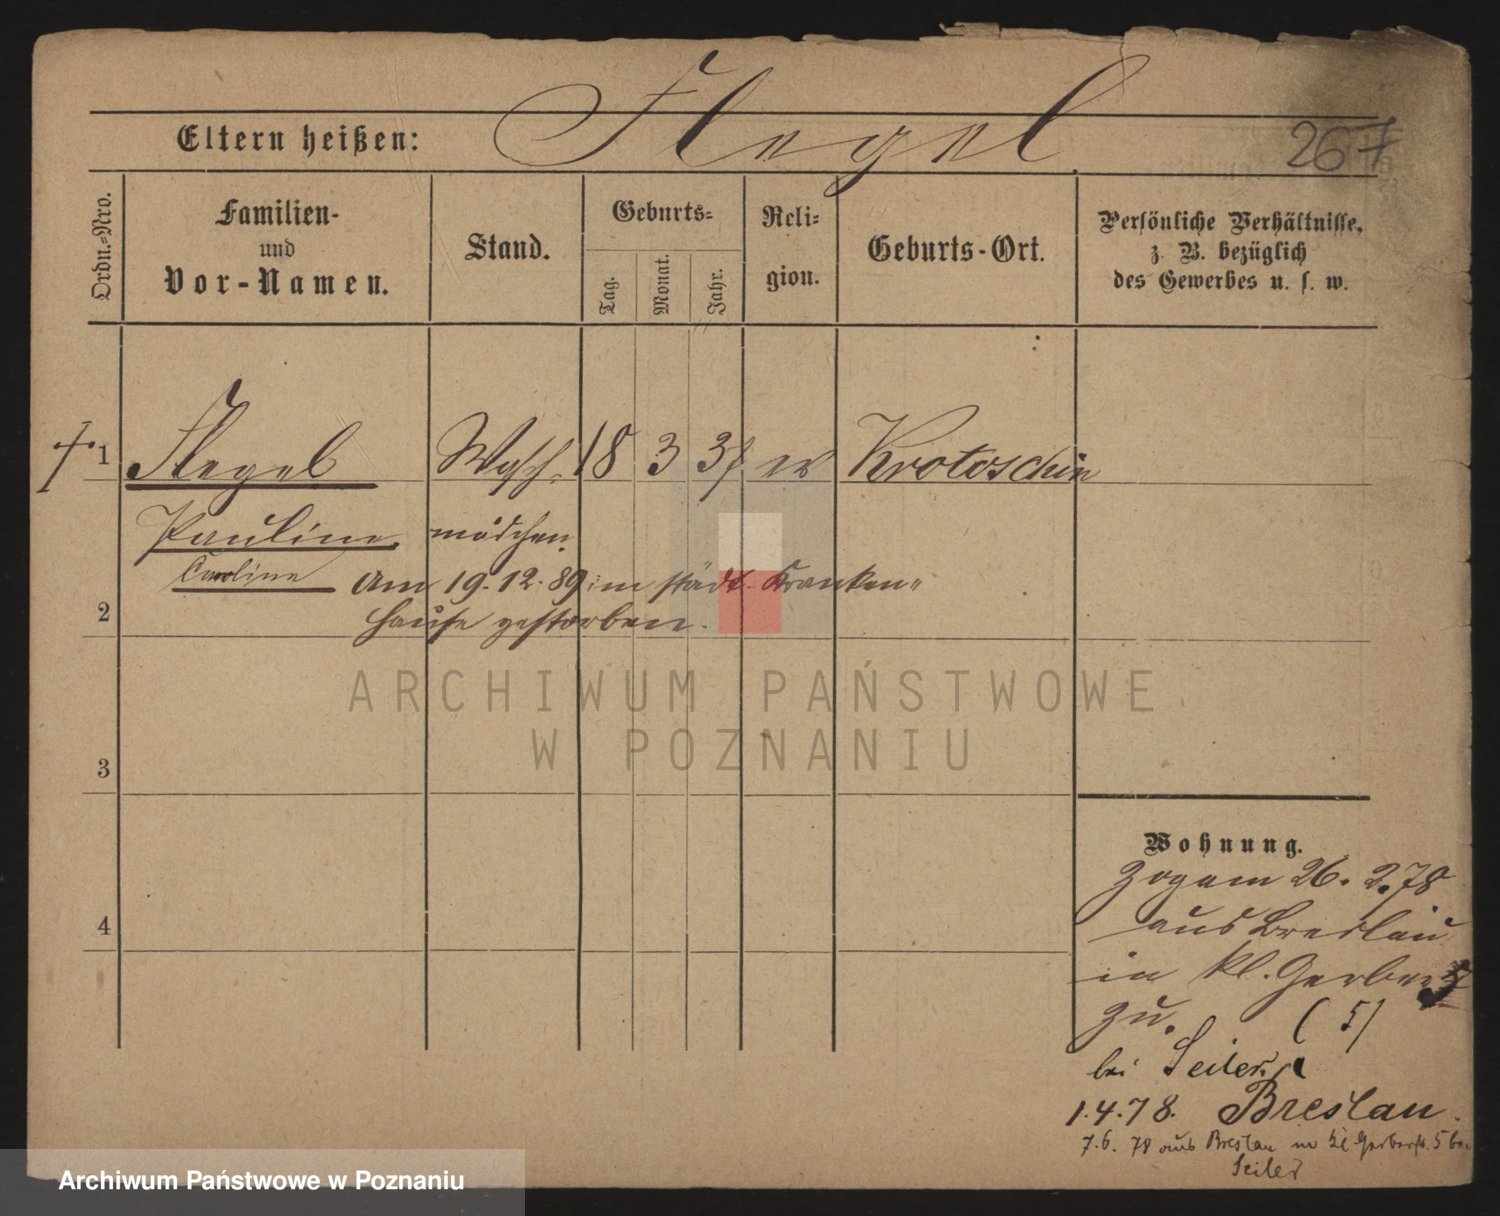 Flegel
Eltern heißen:
267
Ordn.=Nro.
Familien-
und
Vor-Namen.
Stand.
Geburts=
Tag.
Monat.
Jahr.
Reli=
gion.
Geburts-Ort.
Persönliche Verhältnisse,
z. B. bezüglich
des Gewerbes u. s. w.
† 1 Flegel 18 3 37 ev Krotoschin
Pauline mädchen.
Caroline Am 19.12.89 im städt. Kranken=
2 hause gestorben.
ARCHIWUM PAŃSTWOWE
W POZNANIU
3
Wohnung.
4
Zog am 26.2.78
aus Breslau
in kl. Gerberst
zu. (5)
bei Seiler.
1.4.78. Breslau.
7.6.78 aus Breslau in kl Gerberst. 5 bei
Seiler
Archiwum Państwowe w Poznaniu